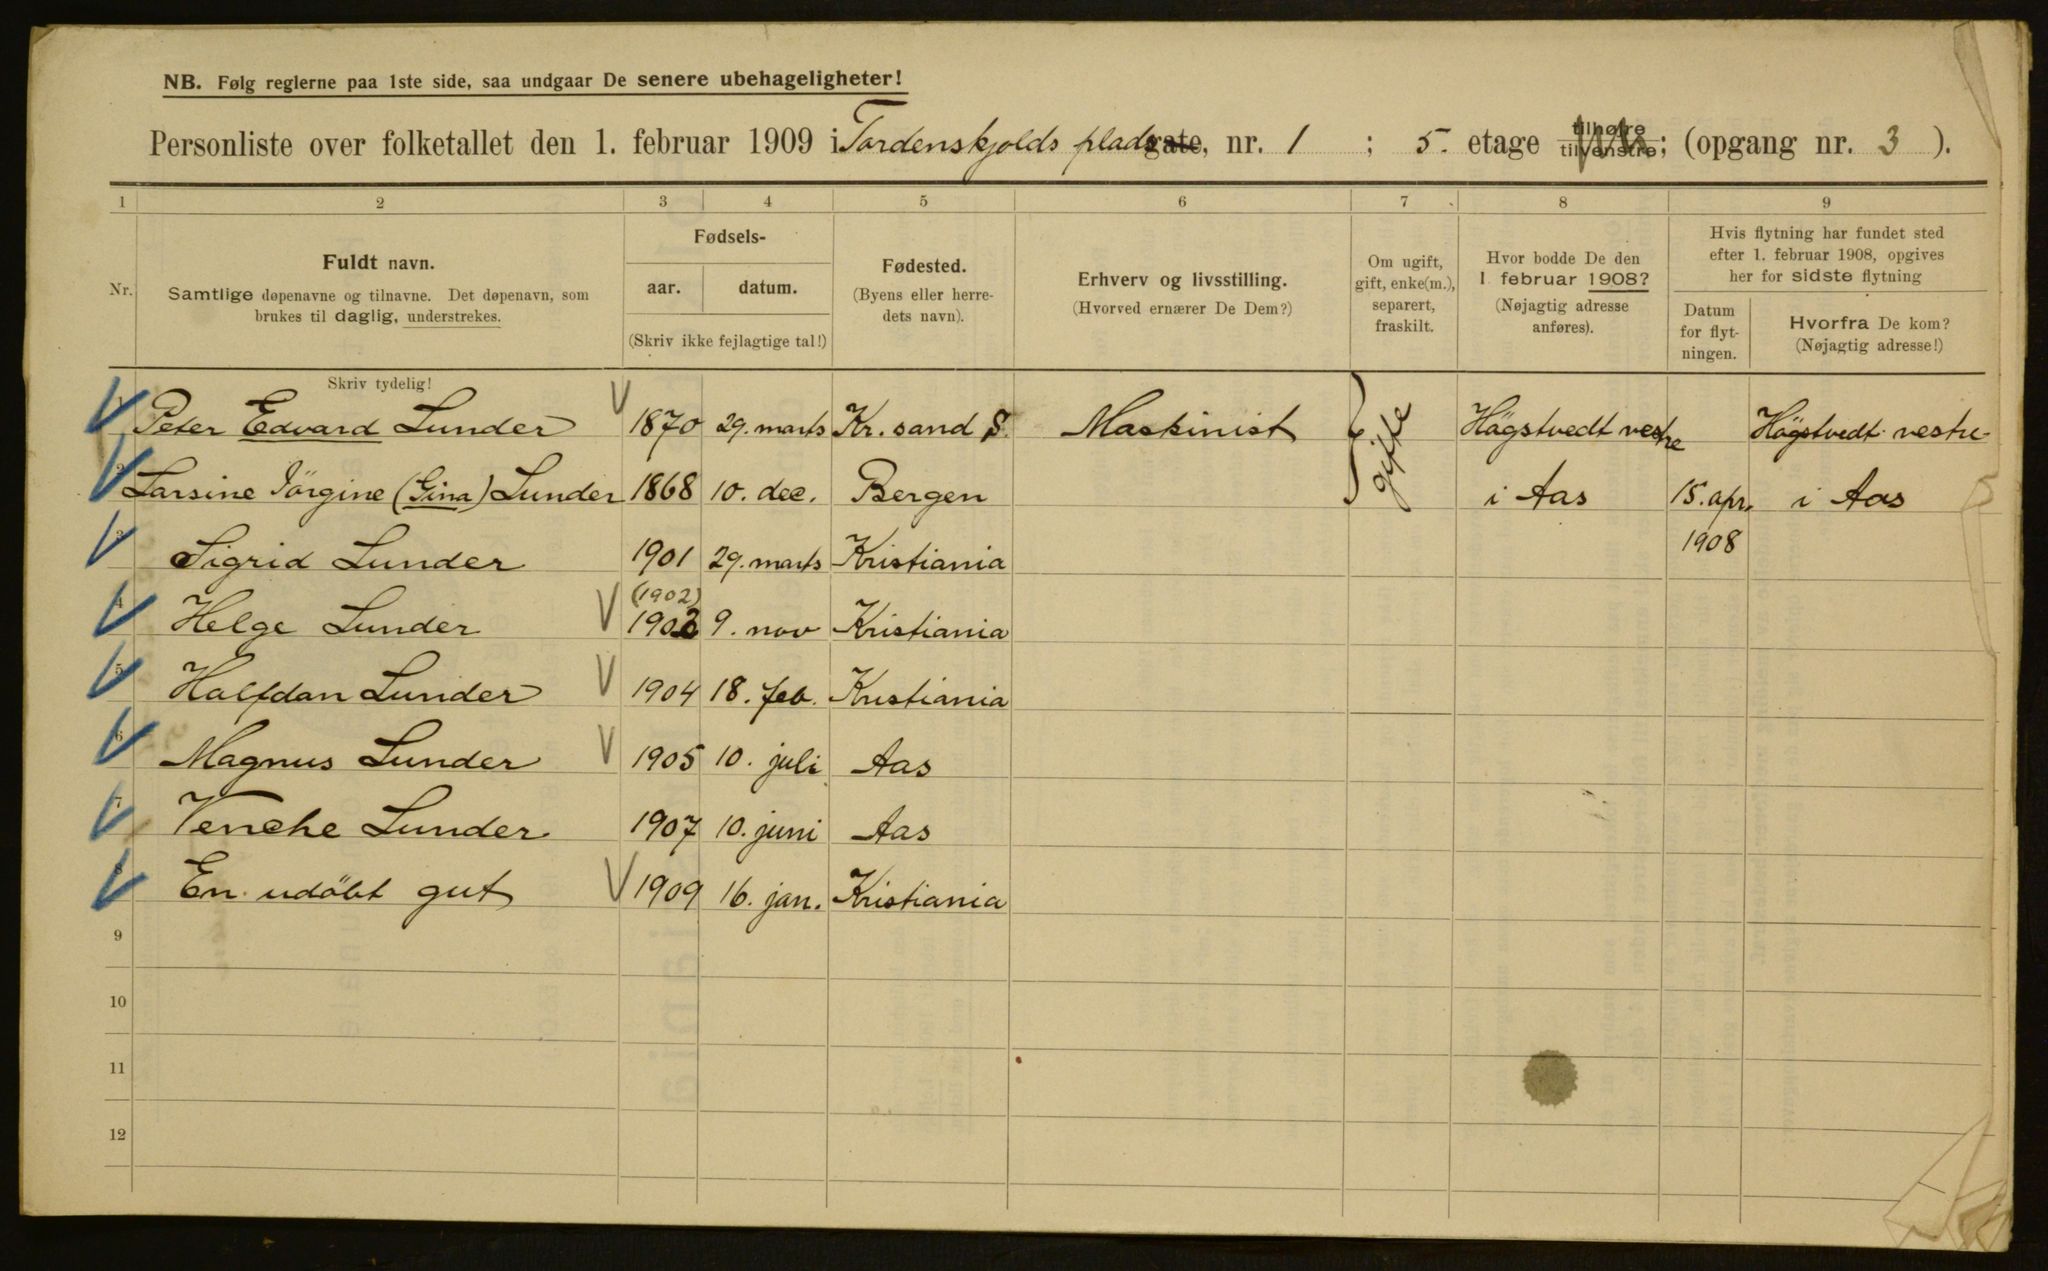 NB. Følg reglerne paa 1ste side, saa undgaar De senere ubehageligheter!
Personliste over folketallet den 1. februar 1909 i Tordenskjolds plads gate, nr. 1 ; 5. etage tilhøire tilvenstre; (opgang nr. 3 ).
1 2 3 4 5 6 7 8 9
Nr.
Fuldt navn.
Samtlige døpenavne og tilnavne. Det døpenavn, som
brukes til daglig, understrekes.
Skriv tydelig!
Fødsels-
aar. datum.
(Skriv ikke fejlagtige tal!)
Fødested.
(Byens eller herre-
dets navn).
Erhverv og livsstilling.
(Hvorved ernærer De Dem?)
Om ugift,
gift, enke(m.),
separert,
fraskilt.
Hvor bodde De den
1 februar 1908?
(Nøjagtig adresse
anføres).
Hvis flytning har fundet sted
efter 1. februar 1908, opgives
her for sidste flytning
Datum
for flyt-
ningen.
Hvorfra De kom?
(Nøjagtig adresse!)
1 Peter Edvard Lunder 1870 29. marts Kr. sand S. Maskinist gifte Högstvedt vestre Högstvedt vestre
2 Larsine Jörgine (Gina) Lunder 1868 10. dec. Bergen i Aas 15. apr. i Aas
1908
3 Sigrid Lunder 1901 29. marts Kristiania
(1902)
4 Helge Lunder 1902 9. nov Kristiania
5 Halfdan Lunder 1904 18. feb. Kristiania
6 Magnus Lunder 1905 10. juli Aas
7 Venche Lunder 1907 10. juni Aas
8 En udöbt gut 1909 16. jan. Kristiania
9
10
11
12